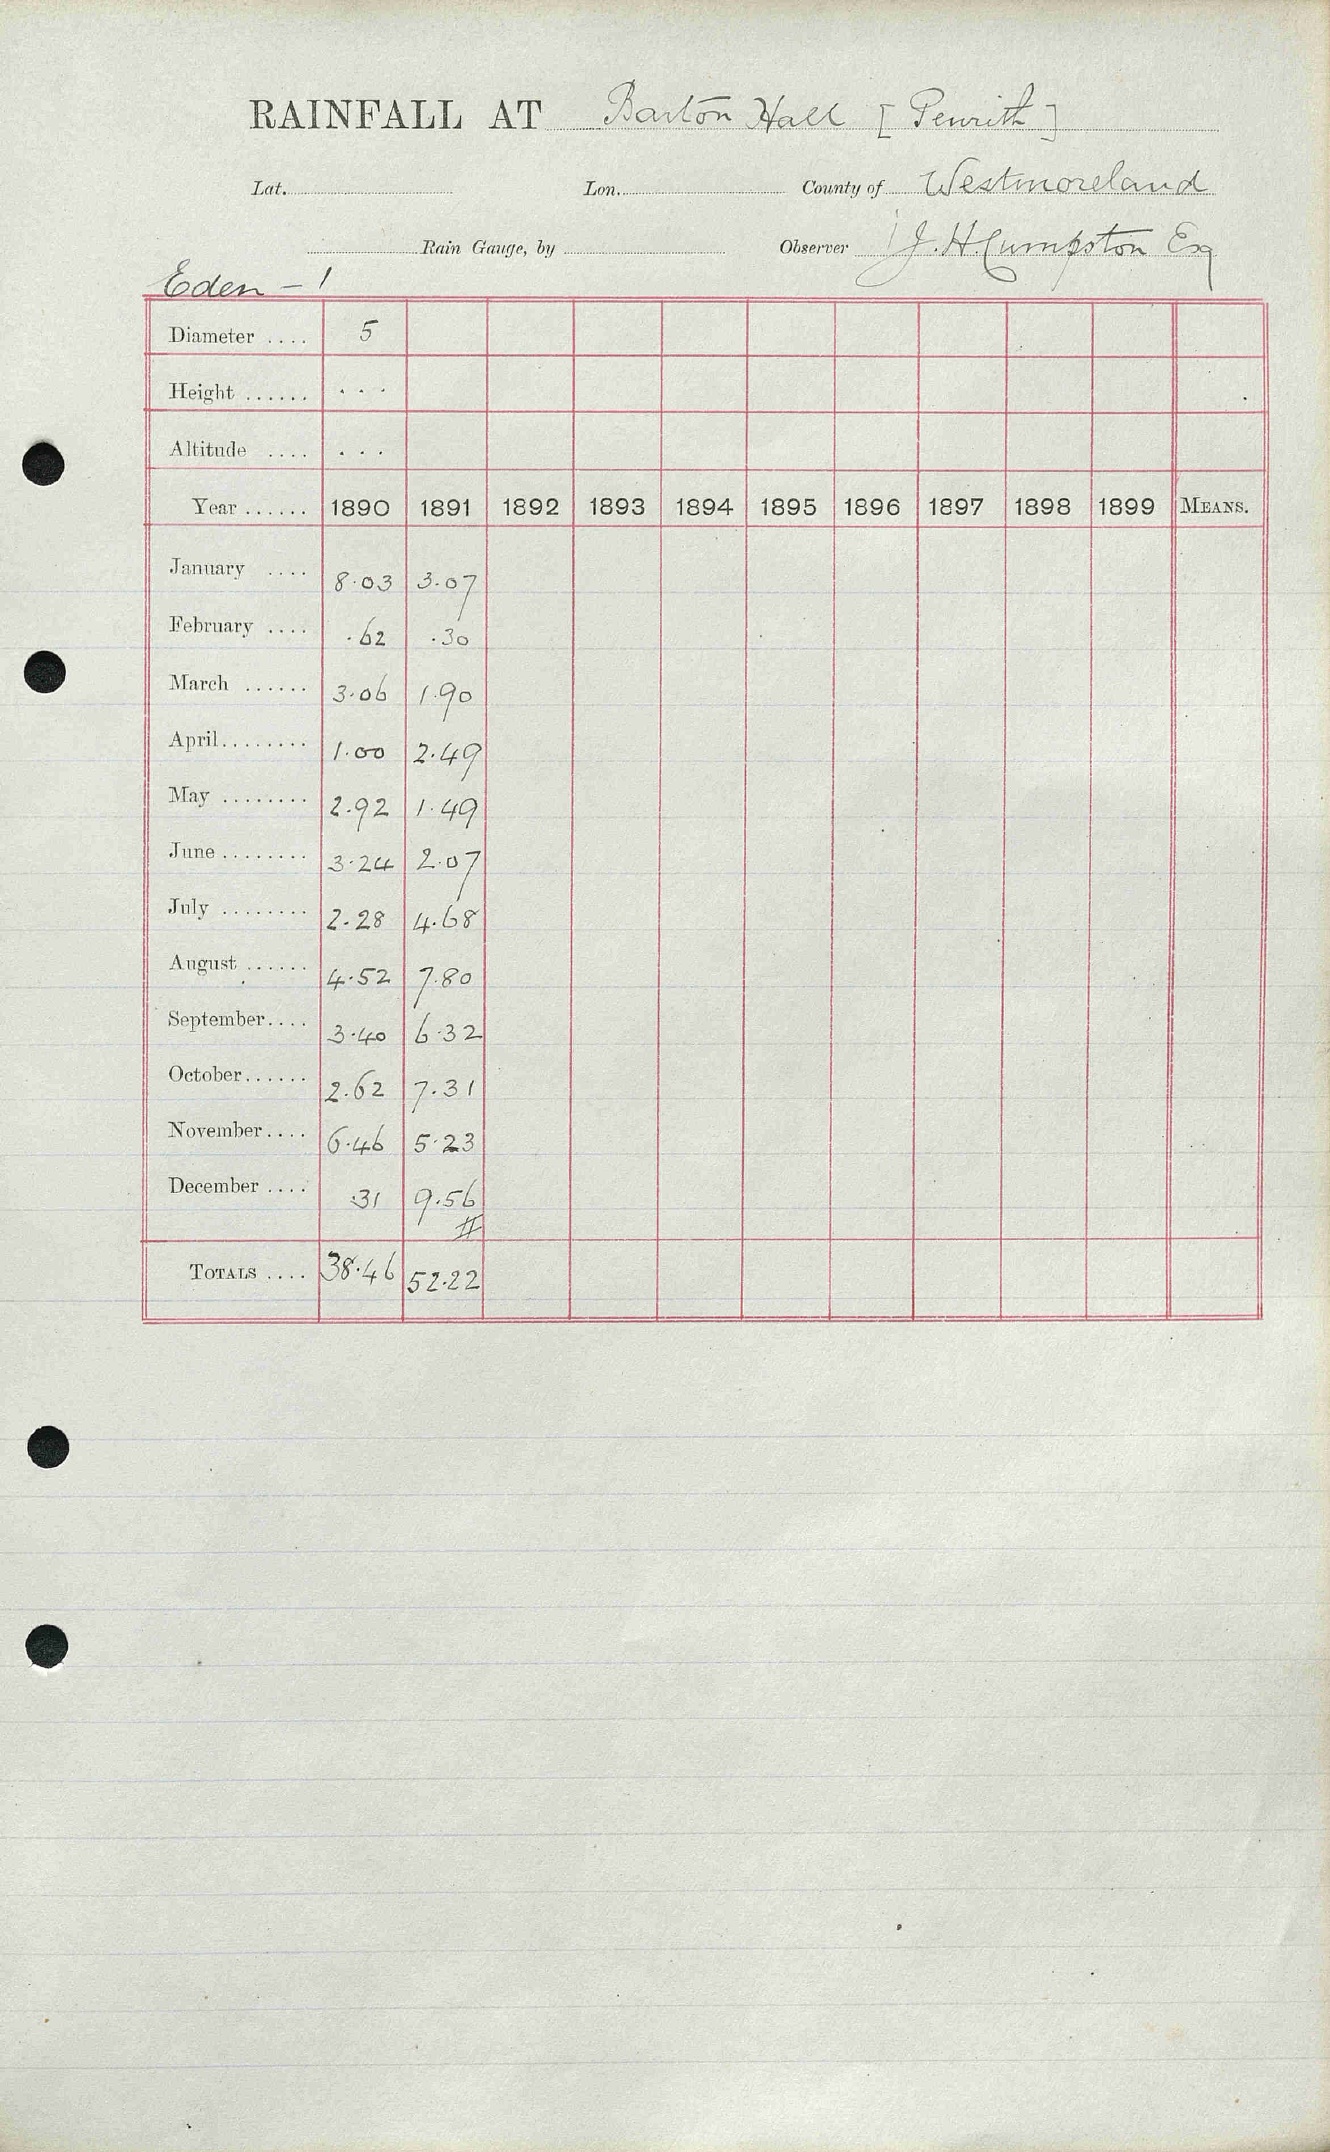 RAINFALL AT Barton Hall [Penrith]
Lat. Lon. County of Westmoreland
Rain Gauge, by Observer J. H. Cumpston Esq
Eden - 1
Diameter .... 5
Height ...... . . .
Altitude .... . . .
Year ...... 1890 1891 1892 1893 1894 1895 1896 1897 1898 1899 MEANS.
January .... 8.03 3.07
February .... .62 .30
March ...... 3.06 1.90
April........ 1.00 2.49
May ........ 2.92 1.49
June ........ 3.24 2.07
July ........ 2.28 4.68
August ...... 4.52 7.80
September.... 3.40 6.32
October...... 2.62 7.31
November.... 6.46 5.23
December .... .31 9.56
#
TOTALS .... 38.46 52.22